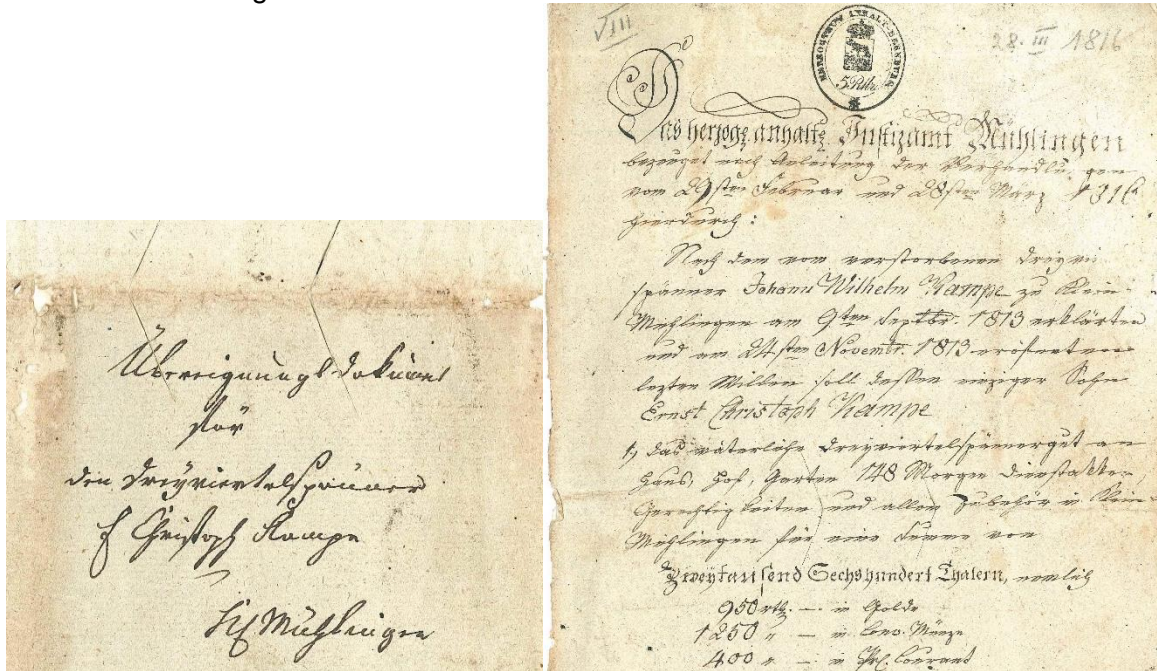 Übereignungs dokument
für
den Dreyviertelspänner
E Christoph Kampe
Kl Mühlingen
VIII
28. III 1816
HERZOGTHUM ANHALT-BERNBURG
5 Rthr
Das herzogl. anhalt. Justizamt Mühlingen
bezeuget nach Anleitung der Verhandlungen
vom 29sten Februar und 28sten März 1816
hierdurch:
Nach dem vom verstorbenen Dreyvier
spänner Johann Wilhelm Kampe zu Klein-
Mühlingen am 9ten Septbr. 1813 erklärten
und am 24sten Novembr. 1813 eröfneten
lezten Willen soll dessen einziger Sohn
Ernst Christoph Kampe
1, das väterliche Dreyviertelspännergut an
Haus, Hof, Garten 148 Morgen Dienstacker,
Gerechtigkeiten und allem Zubehör in Klein-
Mühlingen für eine Summe von
Zweytausend Sechshundert Thalern, nemlich
950 rth. — in Golde
1250 " — in Conv. Münze
400 " — in Pr. Courant